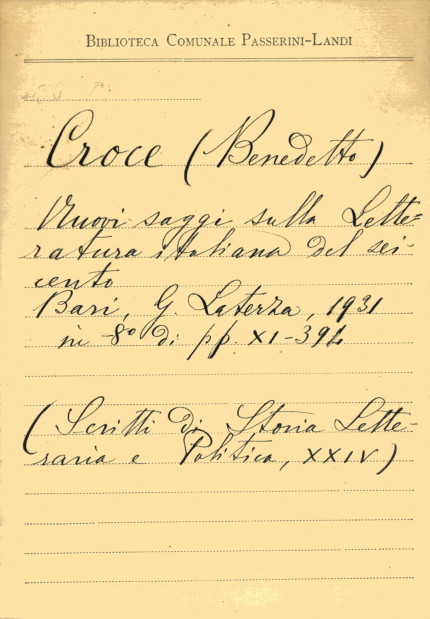 BIBLIOTECA COMUNALE PASSERINI-LANDI
Croce (Benedetto)
Nuovi saggi sulla Lette=
ratura italiana del sei-
cento
Bari, G. Laterza, 1931
in 8º di pp. XI-394
(Scritti di Storia Lette-
raria e Politica, XXIV)